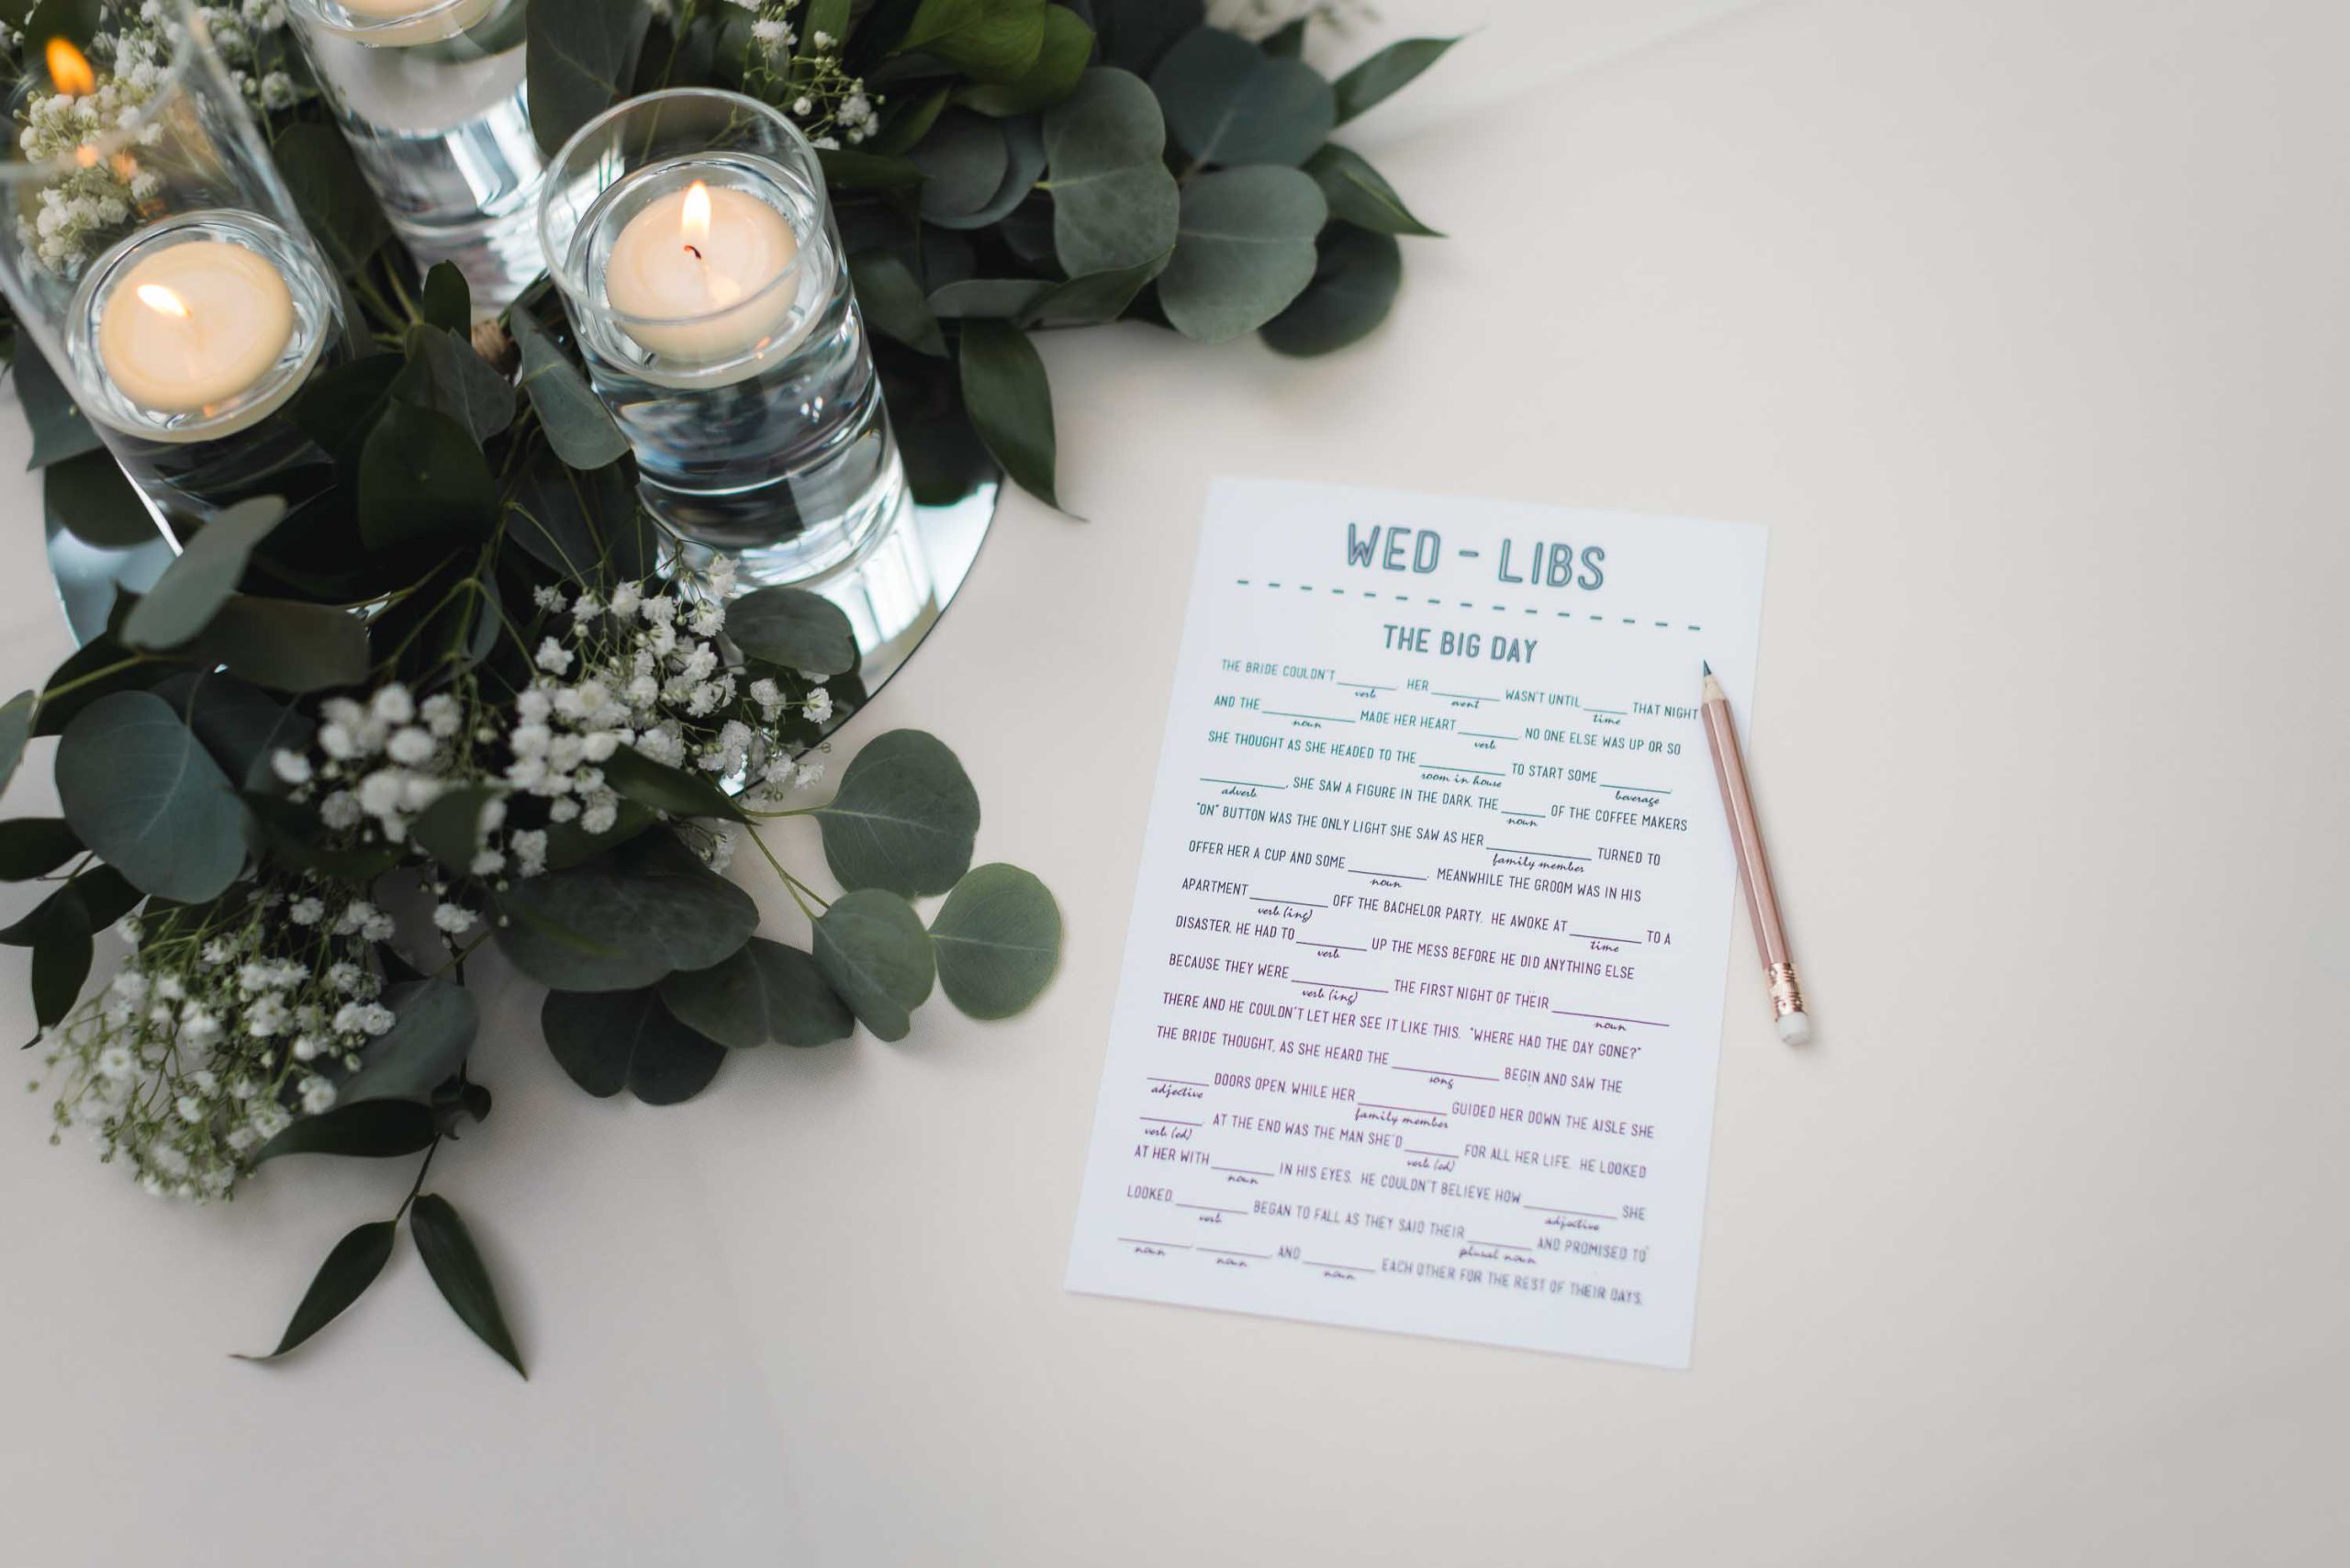 WED - LIBS
THE BIG DAY
THE BRIDE COULDN'T ______. HER ______ WASN'T UNTIL ______ THAT NIGHT
verb event time
AND THE ______ MADE HER HEART ______. NO ONE ELSE WAS UP OR SO
noun verb
SHE THOUGHT AS SHE HEADED TO THE ______ TO START SOME ______.
room in house beverage
______, SHE SAW A FIGURE IN THE DARK. THE ______ OF THE COFFEE MAKERS
adverb noun
"ON" BUTTON WAS THE ONLY LIGHT SHE SAW AS HER ______ TURNED TO
family member
OFFER HER A CUP AND SOME ______. MEANWHILE THE GROOM WAS IN HIS
noun
APARTMENT ______ OFF THE BACHELOR PARTY. HE AWOKE AT ______ TO A
verb (ing) time
DISASTER. HE HAD TO ______ UP THE MESS BEFORE HE DID ANYTHING ELSE
verb
BECAUSE THEY WERE ______ THE FIRST NIGHT OF THEIR ______
verb (ing) noun
THERE AND HE COULDN'T LET HER SEE IT LIKE THIS. "WHERE HAD THE DAY GONE?"
THE BRIDE THOUGHT, AS SHE HEARD THE ______ BEGIN AND SAW THE
song
______ DOORS OPEN. WHILE HER ______ GUIDED HER DOWN THE AISLE SHE
adjective family member
______. AT THE END WAS THE MAN SHE'D ______ FOR ALL HER LIFE. HE LOOKED
verb (ed) verb (ed)
AT HER WITH ______ IN HIS EYES. HE COULDN'T BELIEVE HOW ______ SHE
noun adjective
LOOKED. ______ BEGAN TO FALL AS THEY SAID THEIR ______ AND PROMISED TO
verb plural noun
______, ______, AND ______ EACH OTHER FOR THE REST OF THEIR DAYS.
noun noun noun